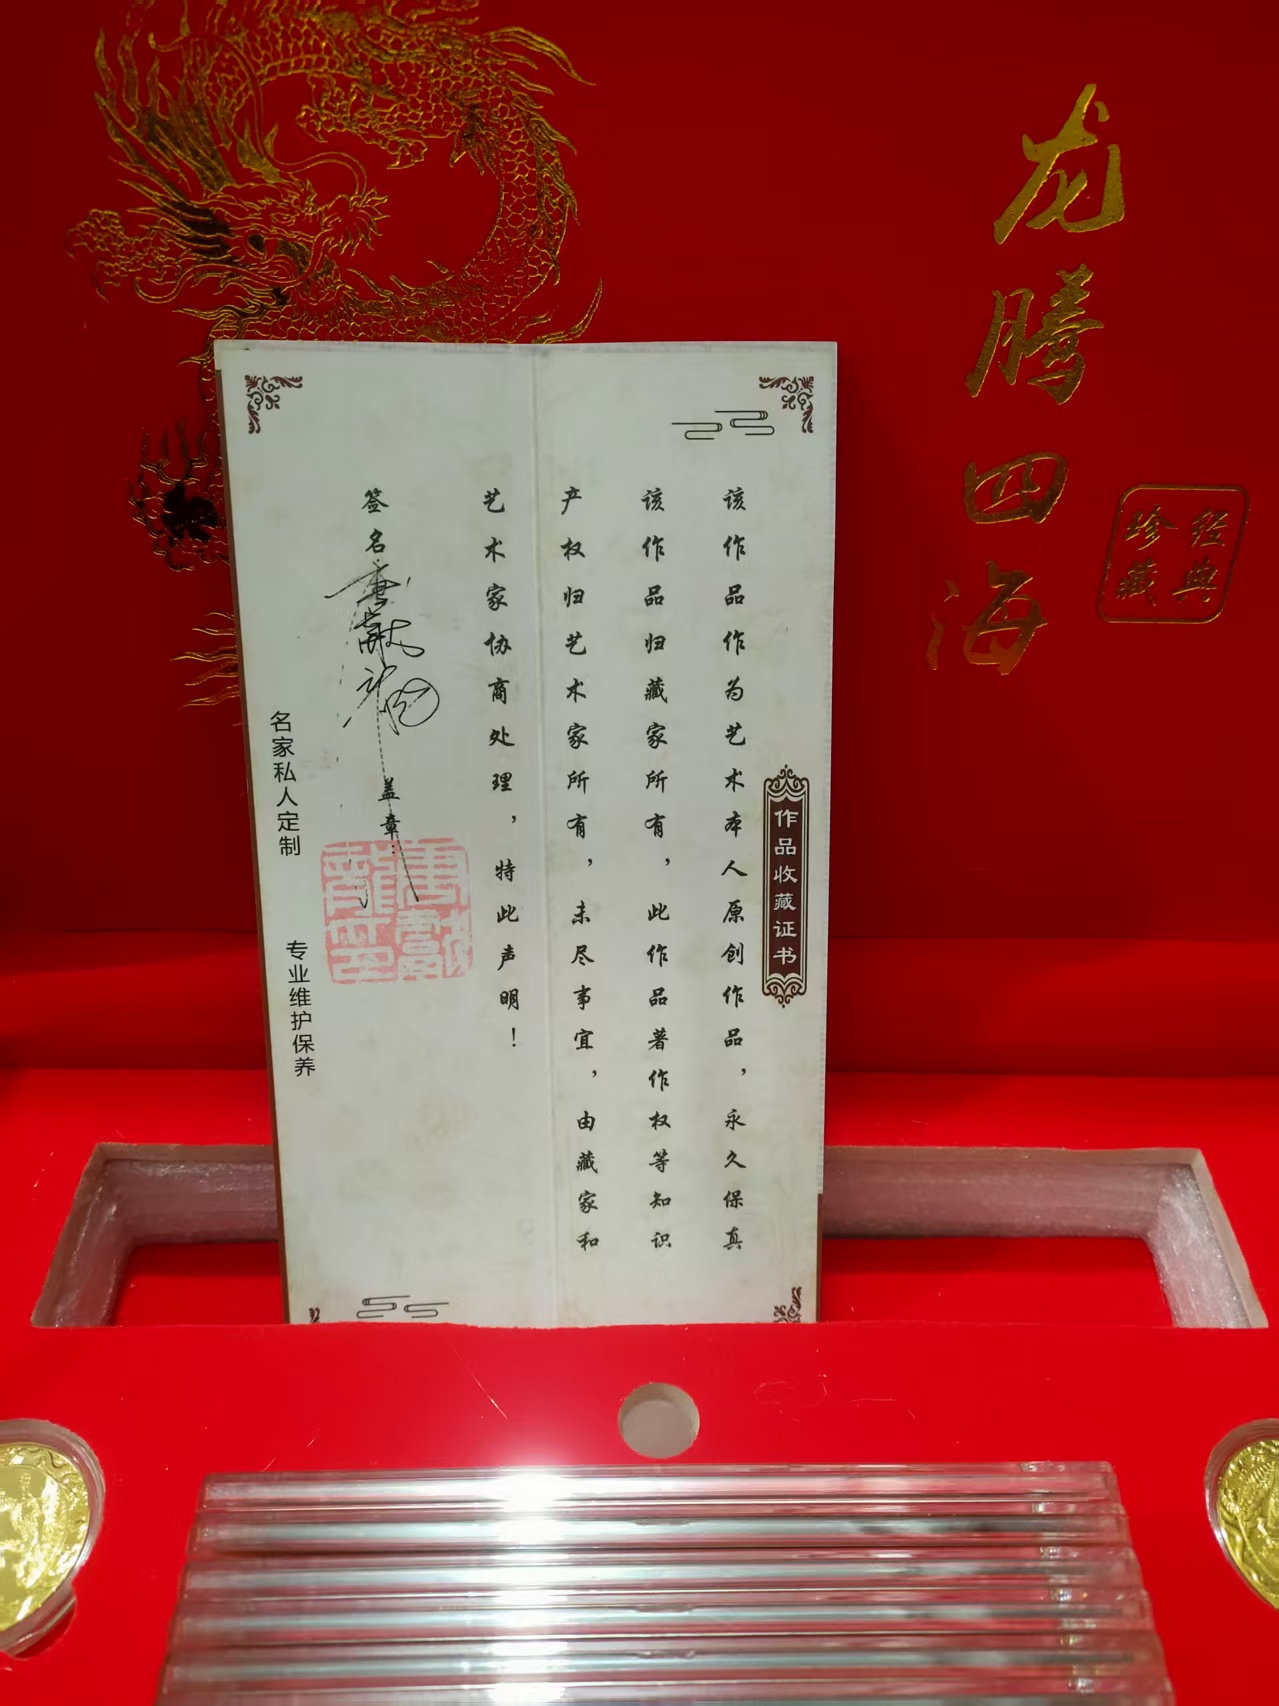 龙腾四海
经典
珍藏
作品收藏证书
该作品作为艺术本人原创作品，永久保真
该作品归藏家所有，此作品著作权等知识
产权归艺术家所有，未尽事宜，由藏家和
艺术家协商处理，特此声明！
签名
盖章：
名家私人定制 专业维护保养